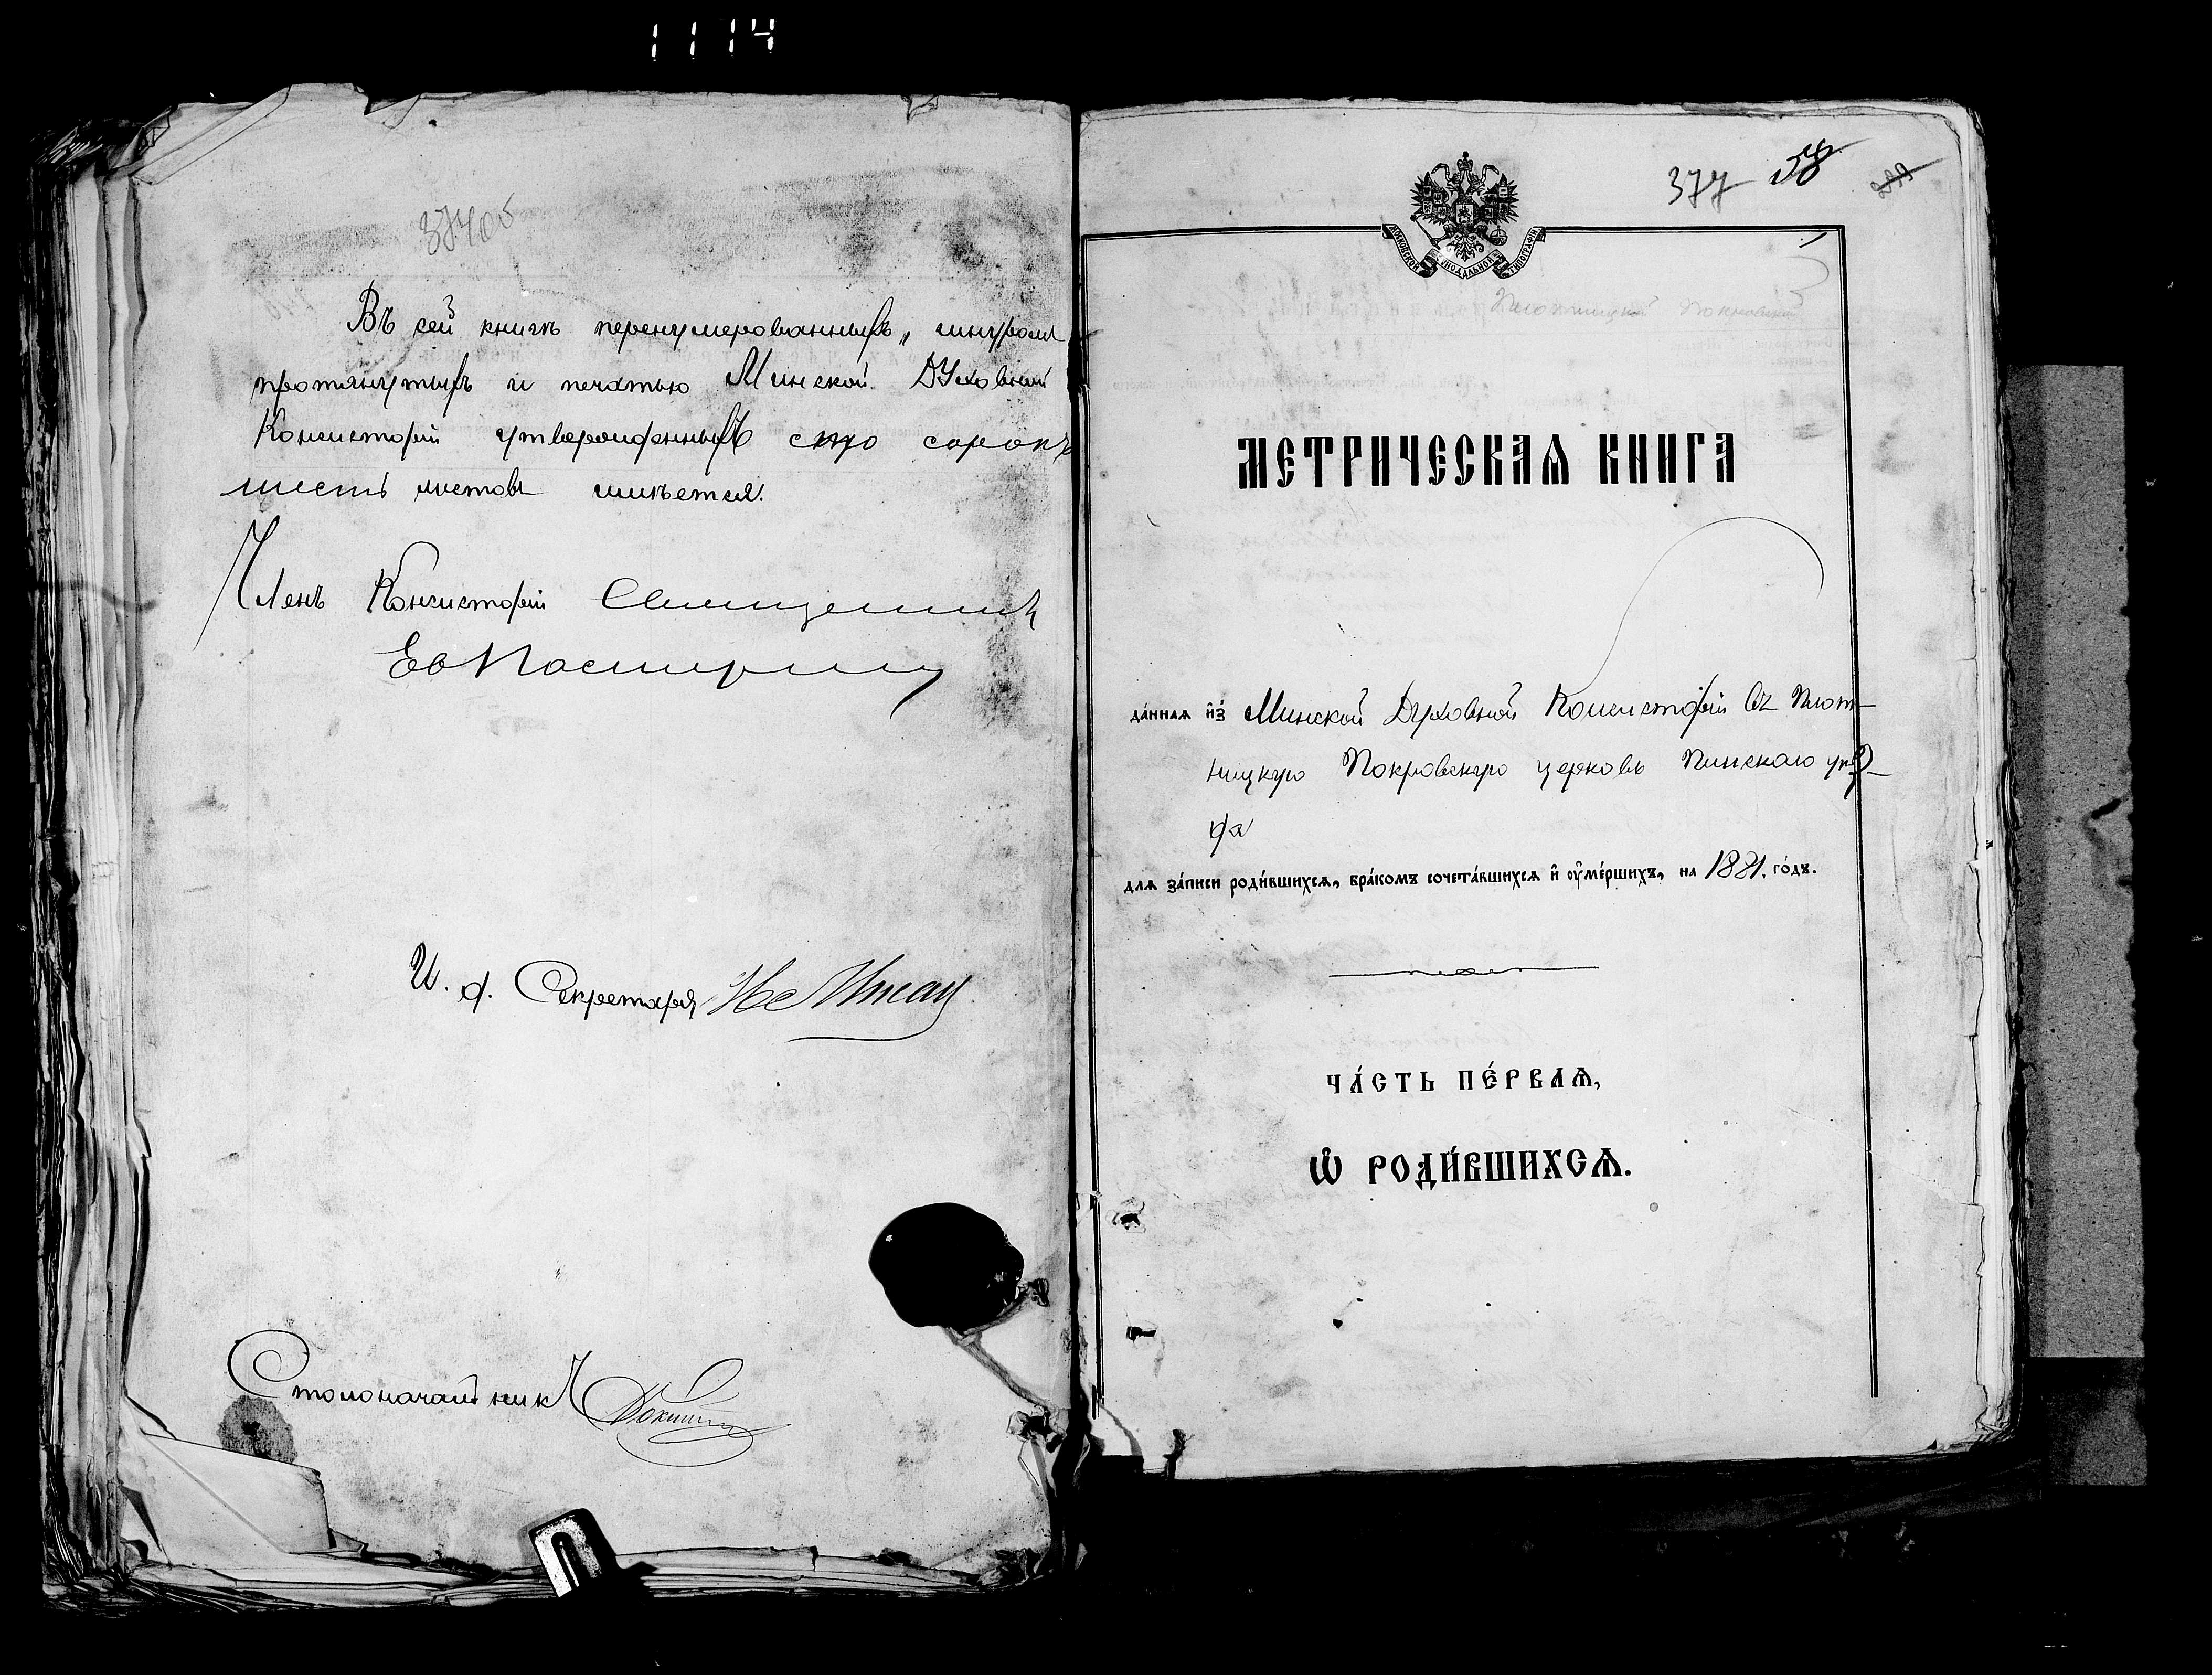 1114
Въ сей книгѣ перенумерованныхъ, шнуромъ
протянутыхъ и печатью Минской Духовной
Консисторіи утвержденныхъ сто сорокъ
шесть листовъ имѣется.
Членъ Консисторіи Священникъ
И. д. Секретаря
Столоначальникъ
377 58
299
МОСКОВСКОЙ СѴНОДАЛЬНОЙ ТИПОГРАФІИ
Плотницкой Покровской
МЕТРИЧЕСКАѦ КНИГА
да́ннаѧ и҆з̾ Минской Духовной Консисторіи въ Плот-
ницкую Покровскую церковь Пинскаго уѣз-
да
для за́писи роди́вшихсѧ, бра́комъ сочета́вшихсѧ и҆ ᲂу҆ме́ршихъ, на 1881. го́дъ.
ЧА́СТЬ ПЕ́РВАѦ,
Ѽ РОДИ́ВШИХСѦ.